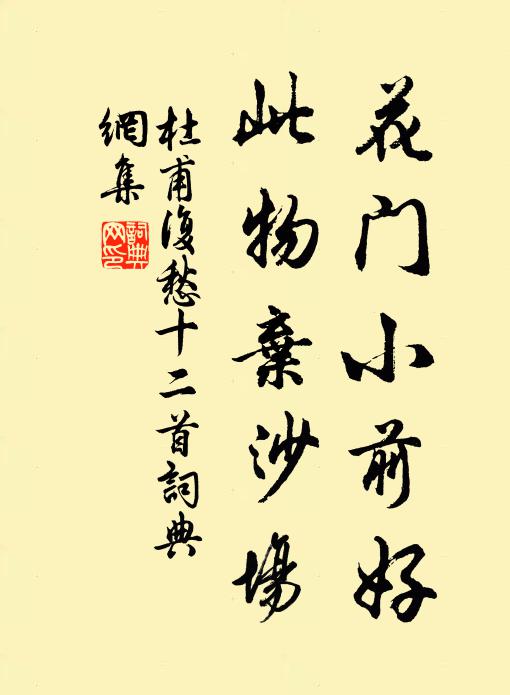 花门小前好
此物棄沙場
杜甫復愁十二首詞典
網集
詞典
网印